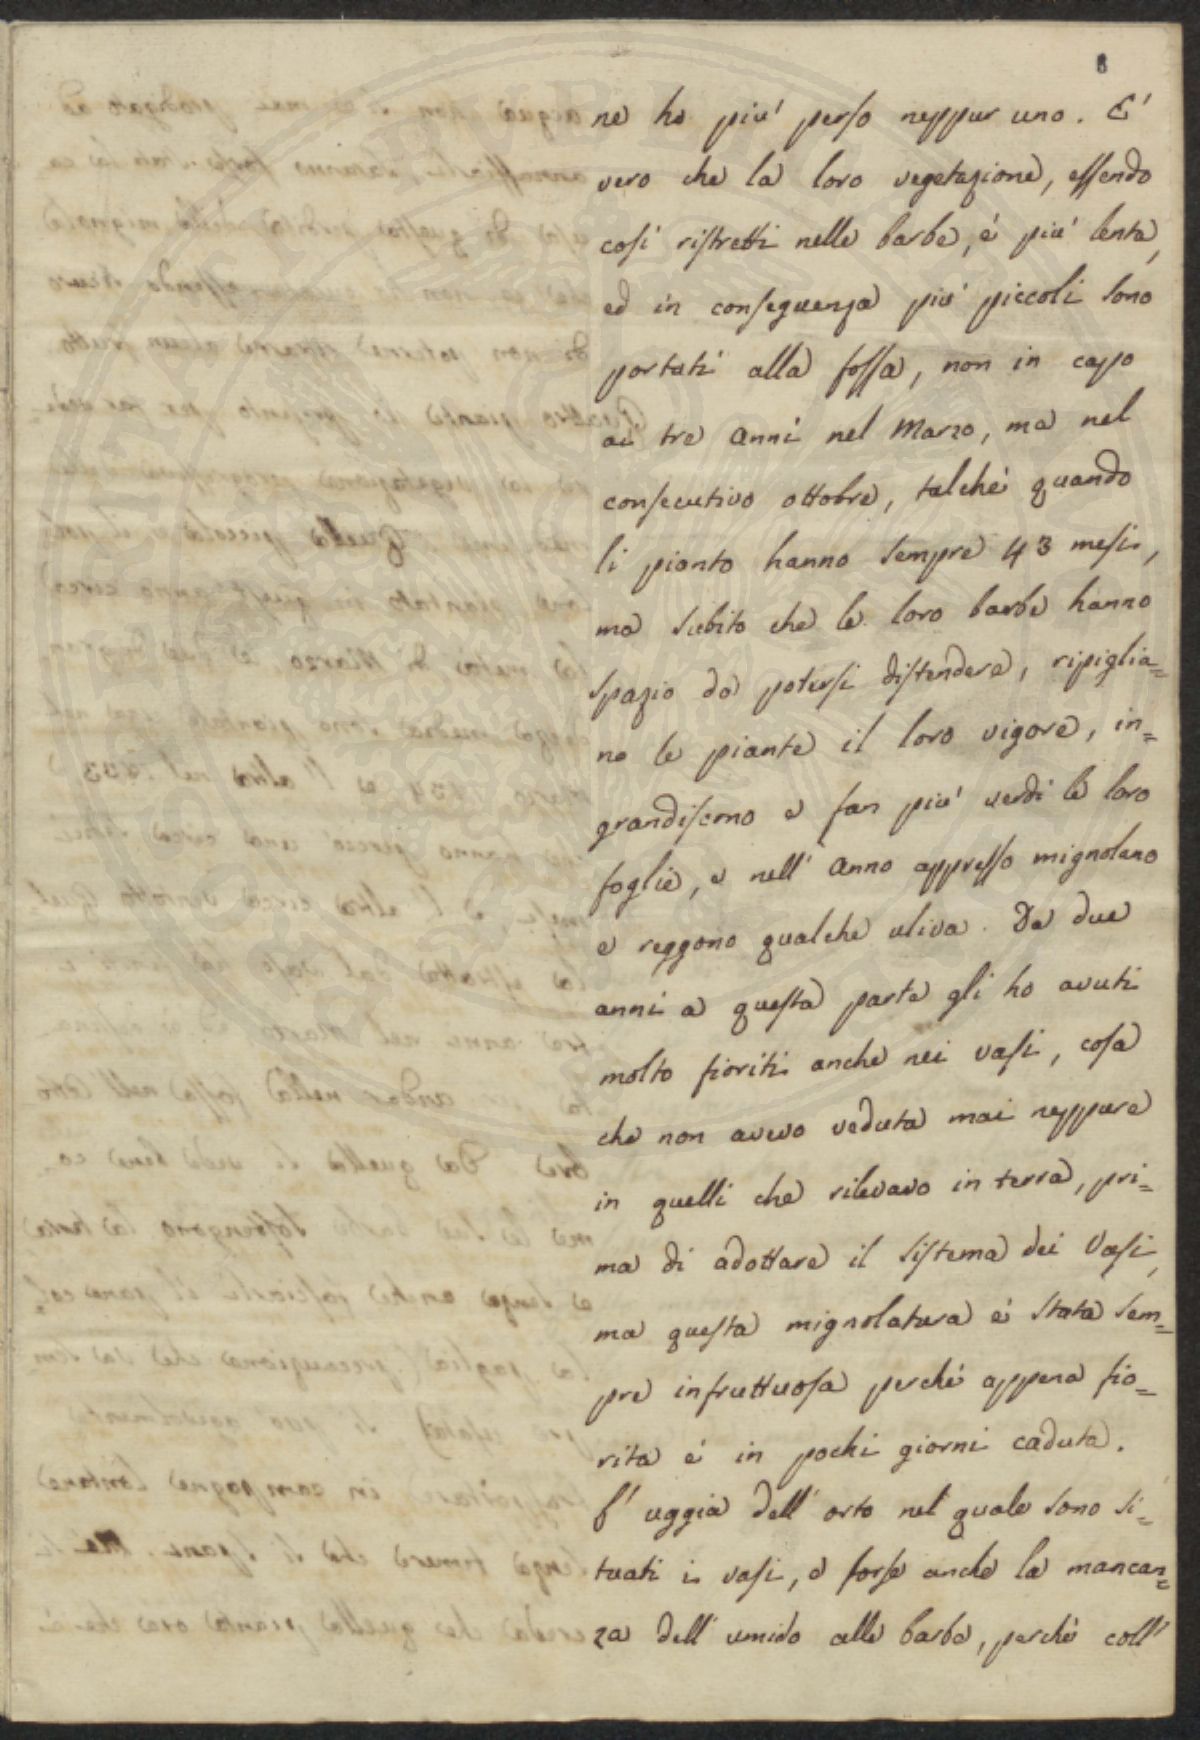 8
ne ho piu' perso neppur uno. E'
vero che la loro vegetazione, essendo
cosi ristretti nelle barbe, è piu' lenta,
ed in conseguenza piu' piccoli sono
portati alla fossa, non in capo
ai tre anni nel Marzo, ma nel
consecutivo ottobre, talchè quando
li pianto hanno sempre 43 mesi,
ma subito che le loro barbe hanno
spazio da potersi distendere, ripiglia=
no le piante il loro vigore, in=
grandiscono e fan piu' verdi le loro
foglie, e nell' anno appresso mignolano
e reggono qualche uliva. Da due
anni a questa parte gli ho avuti
molto fioriti anche nei vasi, cosa
che non avevo veduta mai neppure
in quelli che rilevavo in terra, pri=
ma di adottare il sistema dei Vasi,
ma questa mignolatura è stata sem=
pre infruttuosa perchè appena fio=
rita è in pochi giorni caduta.
L' uggia dell' orto nel quale sono si=
tuati i vasi, o forse anche la mancan=
za dell' umido alle barbe, perchè coll'